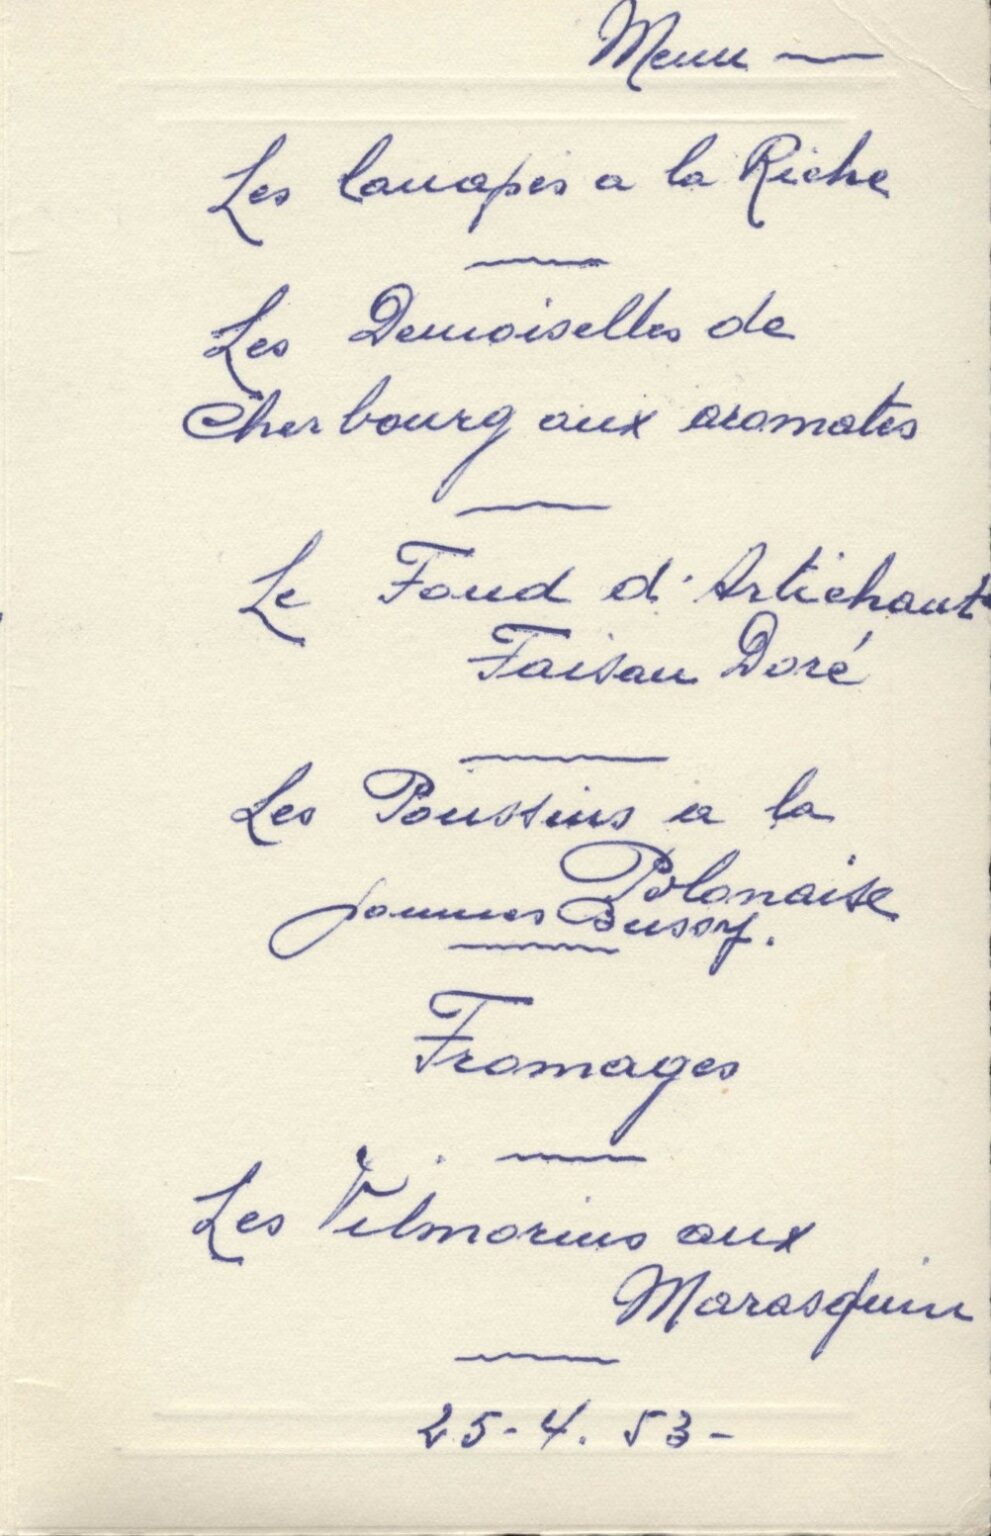 Menu —
Les Canapés a la Riche
Les Demoiselles de
Cherbourg aux aromates
Le Fond d'Artichaut
Faisan Doré
Les Poussins a la
Polonaise
Pommes Bussy.
Fromages
Les Vilmorins aux
Marasquin
25-4.53-